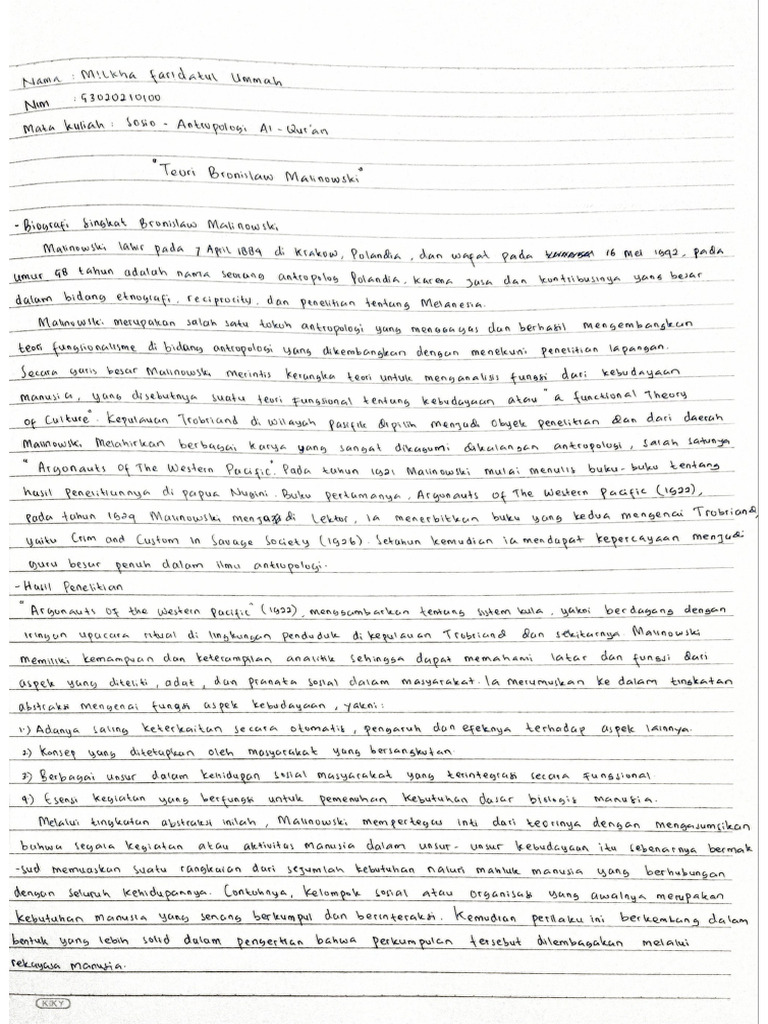 Nama : Milkha Faridatul Ummah
Nim : G3020210100
Mata kuliah : Sosio - Antropologi Al - Qur'an
"Teori Bronislaw Malinowski"
- Biografi Singkat Bronislaw Malinowski
Malinowski lahir pada 7 April 1884 di Krakow, Polandia, dan wafat pada 16 Mei 1942, pada
umur 58 tahun adalah nama seorang antropolog Polandia, karena jasa dan kontribusinya yang besar
dalam bidang etnografi, reciprocity, dan penelitian tentang Melanesia.
Malinowski merupakan salah satu tokoh antropologi yang menggagas dan berhasil mengembangkan
teori fungsionalisme di bidang antropologi yang dikembangkan dengan menekuni penelitian lapangan.
Secara garis besar Malinowski merintis kerangka teori untuk menganalisis fungsi dari kebudayaan
manusia, yang disebutnya suatu teori fungsional tentang kebudayaan atau "a functional Theory
of Culture". Kepulauan Trobriand di wilayah pasifik dipilih menjadi obyek penelitian dan dari daerah
Malinowski Melahirkan berbagai karya yang sangat dikagumi dikalangan antropologi, salah satunya
"Argonauts of The Western Pacific". Pada tahun 1921 Malinowski mulai menulis buku-buku tentang
hasil penelitiannya di papua Nugini. Buku pertamanya, Argonauts of The Western Pacific (1922),
pada tahun 1924 Malinowski menjadi Lektor, ia menerbitkan buku yang kedua mengenai Trobriand,
yaitu Crim and Custom in Savage Society (1926). Setahun kemudian ia mendapat kepercayaan menjadi
guru besar penuh dalam ilmu antropologi.
- Hasil Penelitian
"Argonauts of the western pacific" (1922), menggambarkan tentang sistem kula, yakni berdagang dengan
iringan upacara ritual di lingkungan penduduk di kepulauan Trobriand dan sekitarnya. Malinowski
memiliki kemampuan dan keterampilan analitik sehingga dapat memahami latar dan fungsi dari
aspek yang diteliti, adat, dan pranata sosial dalam masyarakat. Ia merumuskan ke dalam tingkatan
abstraksi mengenai fungsi aspek kebudayaan, yakni:
1.) Adanya saling keterkaitan secara otomatis, pengaruh dan efeknya terhadap aspek lainnya.
2) Konsep yang ditetapkan oleh masyarakat yang bersangkutan.
3) Berbagai unsur dalam kehidupan sosial masyarakat yang terintegrasi secara fungsional.
4) Esensi kegiatan yang berfungsi untuk pemenuhan kebutuhan dasar biologis manusia.
Melalui tingkatan abstraksi inilah, Malinowski mempertegas inti dari teorinya dengan mengasumsikan
bahwa segala kegiatan atau aktivitas manusia dalam unsur-unsur kebudayaan itu sebenarnya bermak
-sud memuaskan suatu rangkaian dari sejumlah kebutuhan naluri makhluk manusia yang berhubungan
dengan seluruh kehidupannya. Contohnya, kelompok sosial atau organisasi yang awalnya merupakan
kebutuhan manusia yang senang berkumpul dan berinteraksi. Kemudian perilaku ini berkembang dalam
bentuk yang lebih solid dalam pengertian bahwa perkumpulan tersebut dilembagakan melalui
rekayasa manusia.
KIKY